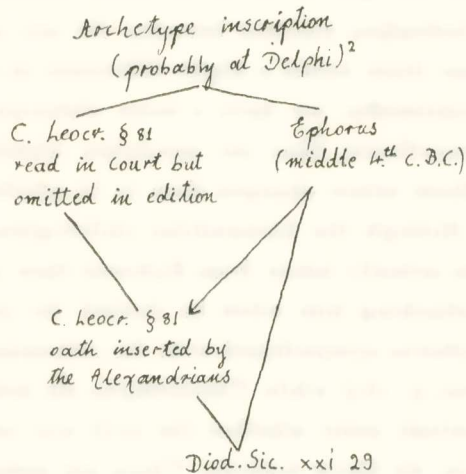 Archetype inscription
(probably at Delphi)²
C. Leocr. § 81
read in court but
omitted in edition
Ephorus
(middle 4.th c. B.C.)
C. Leocr. § 81
oath inserted by
the Alexandrians
Diod. Sic. xxi 29